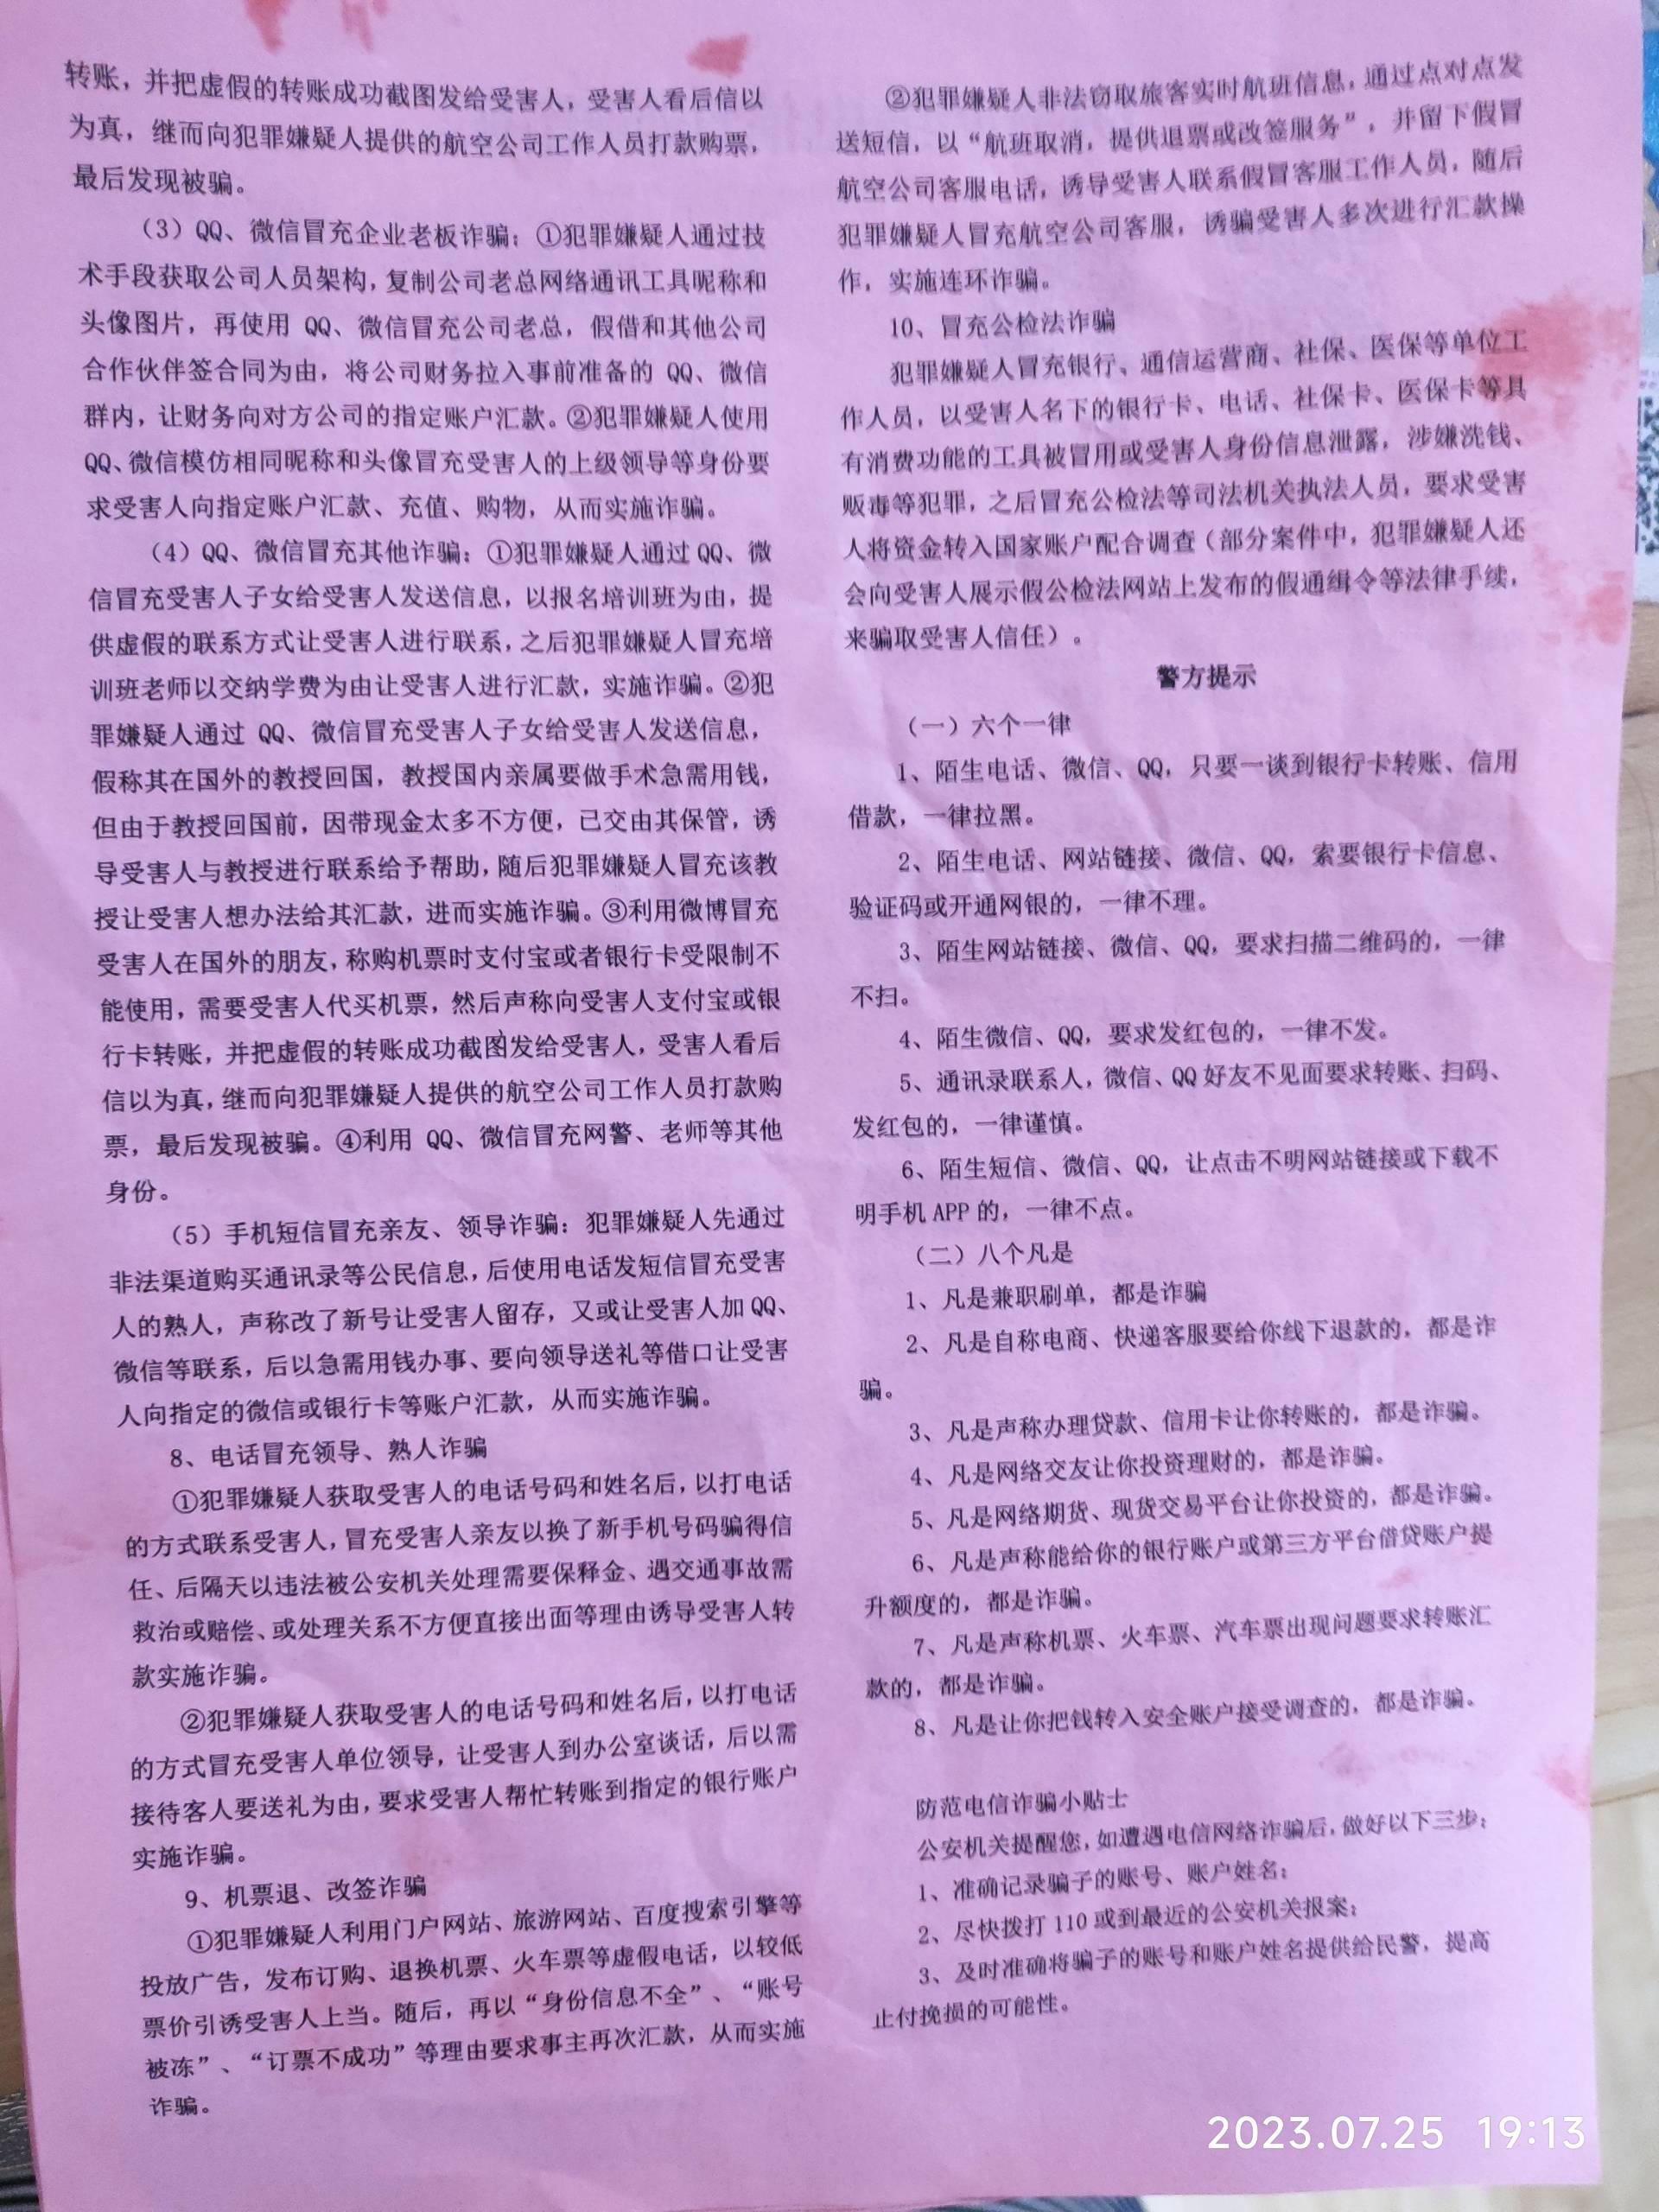 转账，并把虚假的转账成功截图发给受害人，受害人看后信以
为真，继而向犯罪嫌疑人提供的航空公司工作人员打款购票，
最后发现被骗。
（3）QQ、微信冒充企业老板诈骗：①犯罪嫌疑人通过技
术手段获取公司人员架构，复制公司老总网络通讯工具昵称和
头像图片，再使用 QQ、微信冒充公司老总，假借和其他公司
合作伙伴签合同为由，将公司财务拉入事前准备的 QQ、微信
群内，让财务向对方公司的指定账户汇款。②犯罪嫌疑人使用
QQ、微信模仿相同昵称和头像冒充受害人的上级领导等身份要
求受害人向指定账户汇款、充值、购物，从而实施诈骗。
（4）QQ、微信冒充其他诈骗：①犯罪嫌疑人通过 QQ、微
信冒充受害人子女给受害人发送信息，以报名培训班为由，提
供虚假的联系方式让受害人进行联系，之后犯罪嫌疑人冒充培
训班老师以交纳学费为由让受害人进行汇款，实施诈骗。②犯
罪嫌疑人通过 QQ、微信冒充受害人子女给受害人发送信息，
假称其在国外的教授回国，教授国内亲属要做手术急需用钱，
但由于教授回国前，因带现金太多不方便，已交由其保管，诱
导受害人与教授进行联系给予帮助，随后犯罪嫌疑人冒充该教
授让受害人想办法给其汇款，进而实施诈骗。③利用微博冒充
受害人在国外的朋友，称购机票时支付宝或者银行卡受限制不
能使用，需要受害人代买机票，然后声称向受害人支付宝或银
行卡转账，并把虚假的转账成功截图发给受害人，受害人看后
信以为真，继而向犯罪嫌疑人提供的航空公司工作人员打款购
票，最后发现被骗。④利用 QQ、微信冒充网警、老师等其他
身份。
（5）手机短信冒充亲友、领导诈骗：犯罪嫌疑人先通过
非法渠道购买通讯录等公民信息，后使用电话发短信冒充受害
人的熟人，声称改了新号让受害人留存，又或让受害人加 QQ、
微信等联系，后以急需用钱办事、要向领导送礼等借口让受害
人向指定的微信或银行卡等账户汇款，从而实施诈骗。
8、电话冒充领导、熟人诈骗
①犯罪嫌疑人获取受害人的电话号码和姓名后，以打电话
的方式联系受害人，冒充受害人亲友以换了新手机号码骗得信
任、后隔天以违法被公安机关处理需要保释金、遇交通事故需
救治或赔偿、或处理关系不方便直接出面等理由诱导受害人转
款实施诈骗。
②犯罪嫌疑人获取受害人的电话号码和姓名后，以打电话
的方式冒充受害人单位领导，让受害人到办公室谈话，后以需
接待客人要送礼为由，要求受害人帮忙转账到指定的银行账户
实施诈骗。
9、机票退、改签诈骗
①犯罪嫌疑人利用门户网站、旅游网站、百度搜索引擎等
投放广告，发布订购、退换机票、火车票等虚假电话，以较低
票价引诱受害人上当。随后，再以“身份信息不全”、“账号
被冻”、“订票不成功”等理由要求事主再次汇款，从而实施
诈骗。
②犯罪嫌疑人非法窃取旅客实时航班信息，通过点对点发
送短信，以“航班取消，提供退票或改签服务”，并留下假冒
航空公司客服电话，诱导受害人联系假冒客服工作人员，随后
犯罪嫌疑人冒充航空公司客服，诱骗受害人多次进行汇款操
作，实施连环诈骗。
10、冒充公检法诈骗
犯罪嫌疑人冒充银行、通信运营商、社保、医保等单位工
作人员，以受害人名下的银行卡、电话、社保卡、医保卡等具
有消费功能的工具被冒用或受害人身份信息泄露，涉嫌洗钱、
贩毒等犯罪，之后冒充公检法等司法机关执法人员，要求受害
人将资金转入国家账户配合调查（部分案件中，犯罪嫌疑人还
会向受害人展示假公检法网站上发布的假通缉令等法律手续，
来骗取受害人信任）。
警方提示
（一）六个一律
1、陌生电话、微信、QQ，只要一谈到银行卡转账、信用
借款，一律拉黑。
2、陌生电话、网站链接、微信、QQ，索要银行卡信息、
验证码或开通网银的，一律不理。
3、陌生网站链接、微信、QQ，要求扫描二维码的，一律
不扫。
4、陌生微信、QQ，要求发红包的，一律不发。
5、通讯录联系人，微信、QQ 好友不见面要求转账、扫码、
发红包的，一律谨慎。
6、陌生短信、微信、QQ，让点击不明网站链接或下载不
明手机 APP 的，一律不点。
（二）八个凡是
1、凡是兼职刷单，都是诈骗
2、凡是自称电商、快递客服要给你线下退款的，都是诈
骗。
3、凡是声称办理贷款、信用卡让你转账的，都是诈骗。
4、凡是网络交友让你投资理财的，都是诈骗。
5、凡是网络期货、现货交易平台让你投资的，都是诈骗。
6、凡是声称能给你的银行账户或第三方平台借贷账户提
升额度的，都是诈骗。
7、凡是声称机票、火车票、汽车票出现问题要求转账汇
款的，都是诈骗。
8、凡是让你把钱转入安全账户接受调查的，都是诈骗。
防范电信诈骗小贴士
公安机关提醒您，如遭遇电信网络诈骗后，做好以下三步：
1、准确记录骗子的账号、账户姓名；
2、尽快拨打 110 或到最近的公安机关报案；
3、及时准确将骗子的账号和账户姓名提供给民警，提高
止付挽损的可能性。
2023.07.25 19:13